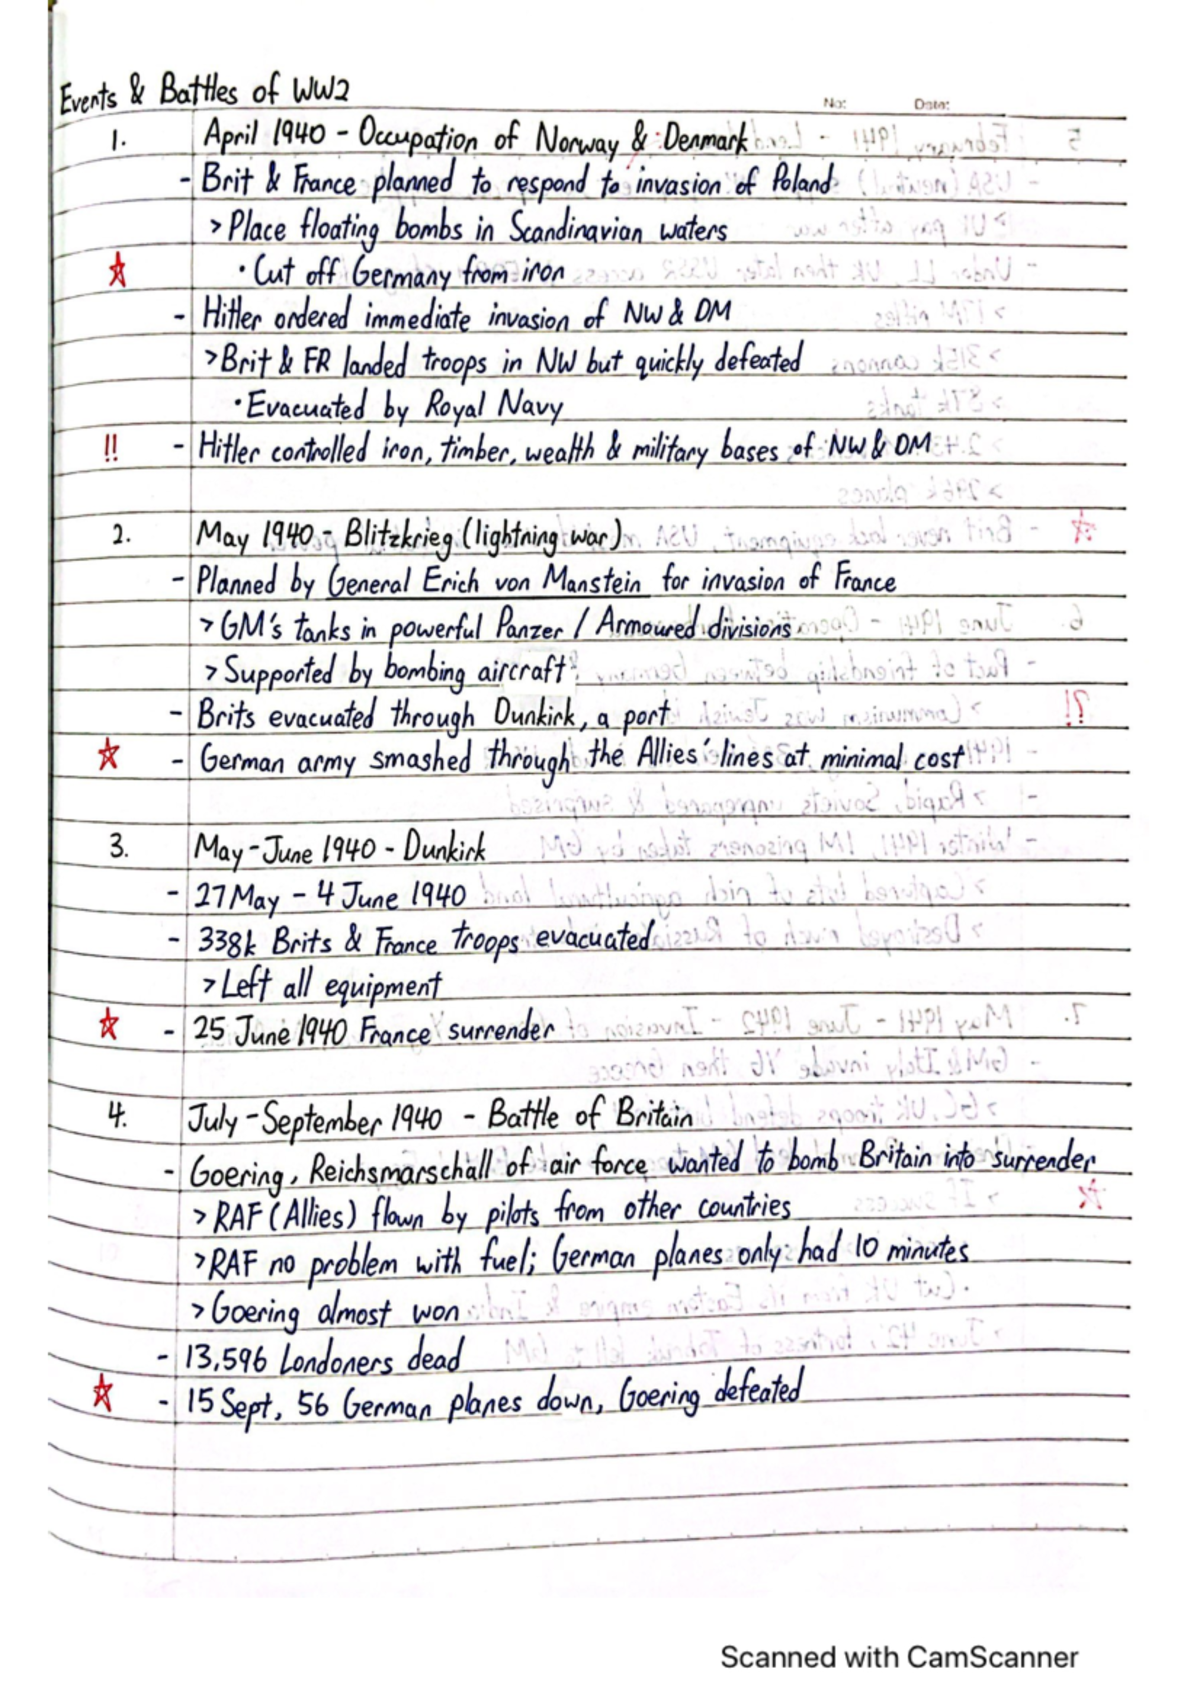 Events & Battles of WW2
No: Date:
1. April 1940 - Occupation of Norway & Denmark
- Brit & France planned to respond to invasion of Poland
> Place floating bombs in Scandinavian waters
☆ • Cut off Germany from iron
- Hitler ordered immediate invasion of NW & DM
> Brit & FR landed troops in NW but quickly defeated
• Evacuated by Royal Navy
!! - Hitler controlled iron, timber, wealth & military bases of NW & DM
2. May 1940 - Blitzkrieg (lightning war)
- Planned by General Erich von Manstein for invasion of France
> GM's tanks in powerful Panzer / Armoured divisions
> Supported by bombing aircraft
- Brits evacuated through Dunkirk, a port
☆ - German army smashed through the Allies' lines at minimal cost
3. May - June 1940 - Dunkirk
- 27 May - 4 June 1940
- 338k Brits & France troops evacuated
> Left all equipment
☆ - 25 June 1940 France surrender
4. July - September 1940 - Battle of Britain
- Goering, Reichsmarschall of air force wanted to bomb Britain into surrender
> RAF (Allies) flown by pilots from other countries
> RAF no problem with fuel; German planes only had 10 minutes
> Goering almost won
- 13,596 Londoners dead
☆ - 15 Sept, 56 German planes down, Goering defeated
Scanned with CamScanner